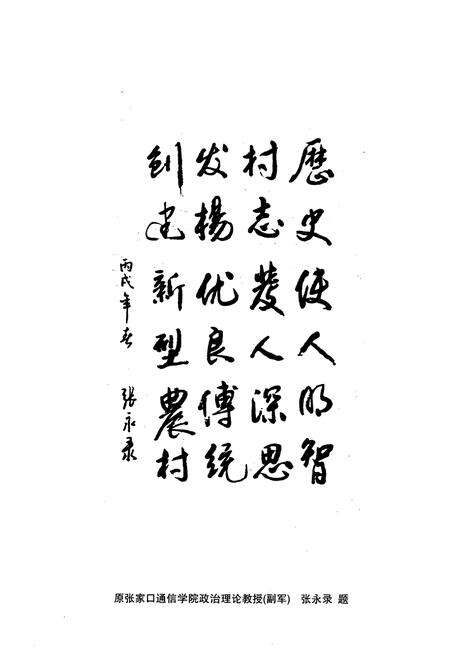 歷史使人明智
村志發人深思
发楊优良傳统
创建新型農村
丙戌年春 张永录
原张家口通信学院政治理论教授(副军) 张永录 题